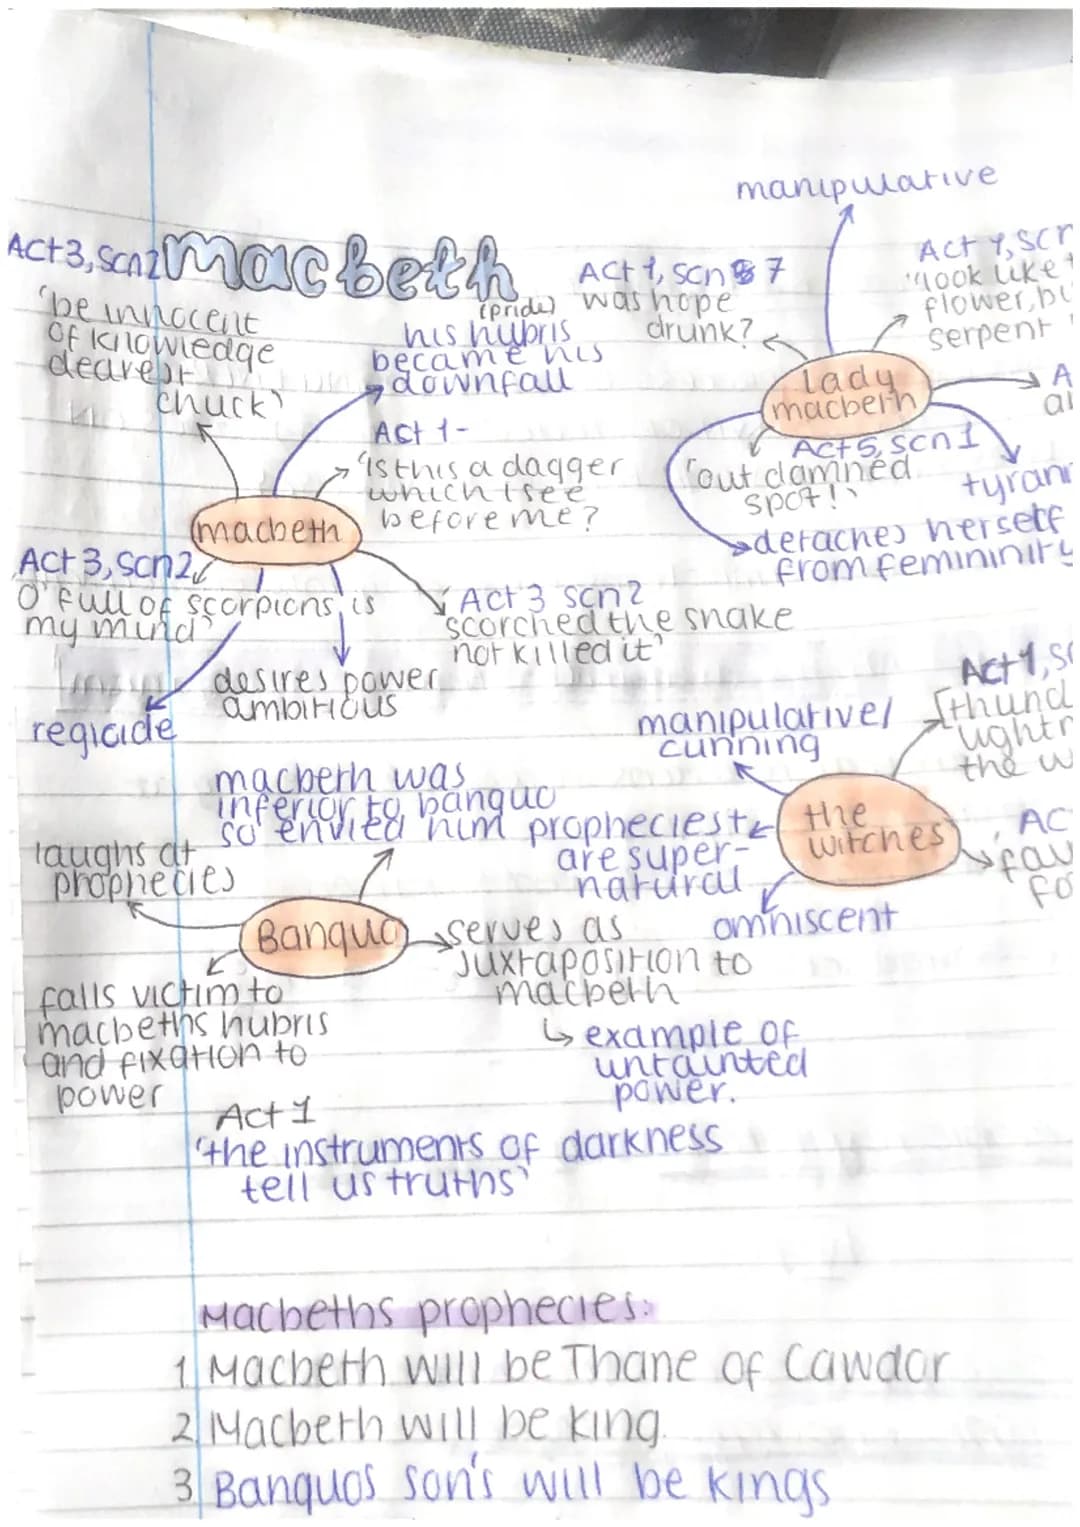 manipulative
Act 3, Scn2
macbeth
'be innocent
of knowledge
dearest
chuck'
(pride)
his hubris
became his
downfall
Act 1-
'Is this a dagger
which I see
before me?
macbeth
Act 3, Scn2
O' full of scorpions is
my mind'
Act 3 scn2
scorched the snake
not killed it'
desires power
ambitious
regicide
Act 1, scn 7
was hope
drunk?
Act 1, scn
"look like
flower, bu
serpent
lady
macbeth
A
Act 5, scn 1
'out damned
spot!'
tyran
detaches herself
from femininity
macbeth was
inferior to banquo
so envied him
laughs at
prophecies
Banquo
serves as
juxtaposition to
macbeth
↳ example of
untainted
power.
falls victim to
macbeths hubris
and fixation to
power
Act 1
'the instruments of darkness
tell us truths'
manipulative/
cunning
Act 1, sc
[thund
lightn
the w
the
witches
prophecies
are super-
natural
omniscent
Ac
'fa
fo
Macbeths prophecies:
1 Macbeth will be Thane of Cawdor
2 Macbeth will be king.
3 Banquos son's will be kings